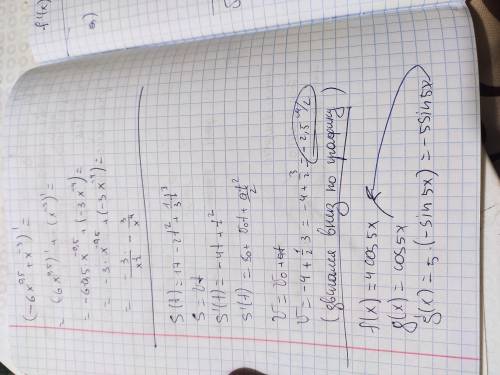 (-6x^0,5 + x^-3)' =
= (6x^0,5)' + (x^-3)' =
= -6·0,5·x^-0,5 + (-3x^-4) =
= -3·x^-0,5 + (-3x^-4) =
= -3/x^½ - 3/x^4
S(t) = 17 - 2t² + 1/3 t³
S = Vt
S'(t) = -4t + t²
S'(t) = S0 + V0t + at²/2
V = V0 + at
V = -4 + ½·3 = -4 + 3/2 = -2,5 м/с
(двигался вниз по графику)
f(x) = 4 cos 5x
g(x) = cos 5x
g'(x) = 5·(-sin 5x) = -5 sin 5x
f'(x)